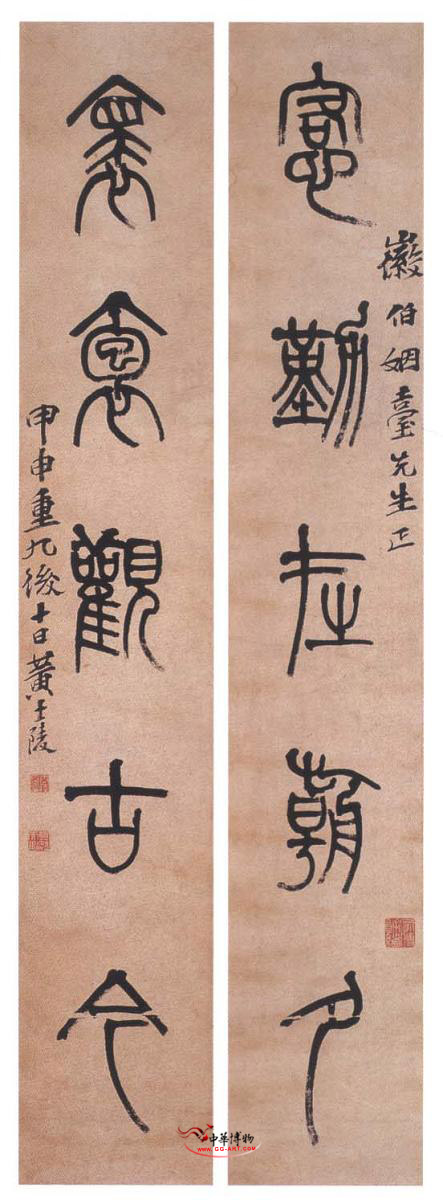 徽伯姻臺先生正
愙勤在朝夕
褱袌觀古今
甲申重九後十日黃士陵
中華博物
www.GG-ART.COM